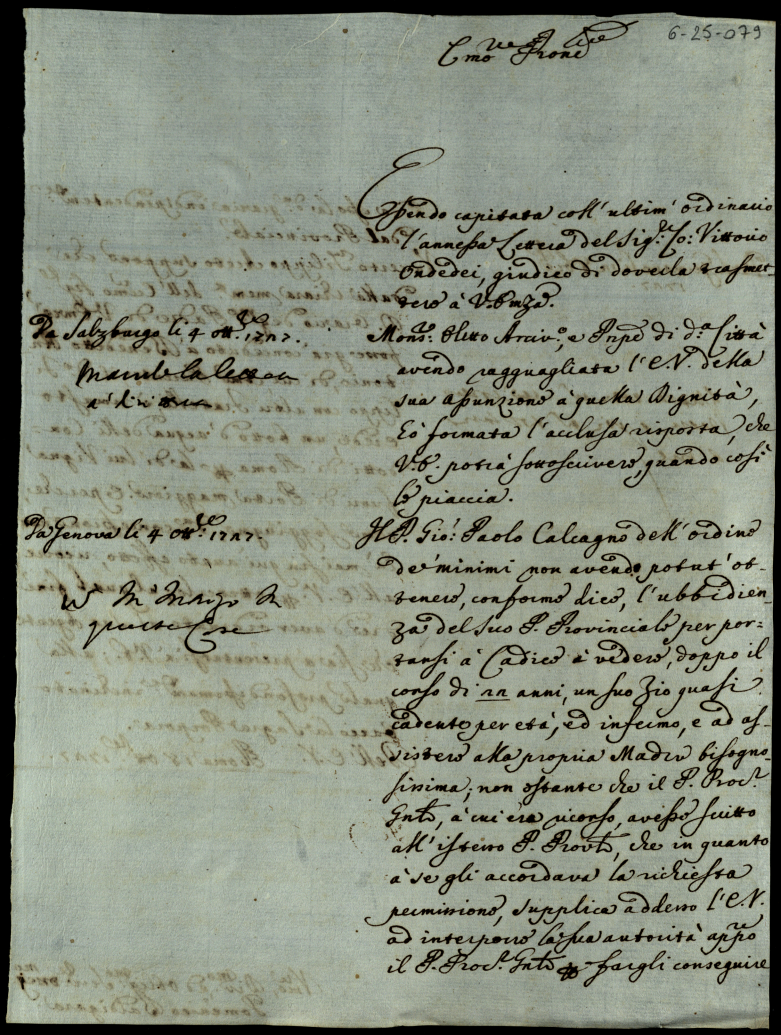 6-25-079
Emo ve Prone
Essendo capitata coll' ultim' ordinario
l'annessa Lettera del Sig.r Co: Vittorio
Ondedei, giudico di doverla trasmet-
tere à V. Emza.
Da Salzburgo li 4 ott.re 1727.
Mons.r Eletto Arciv.o, e Pnpe di d.a Città
avendo ragguagliata l'E.V. della
sua assunzione à quella Dignità,
hò formata l'acclusa risposta, che
V.E. potrà sottoscrivere, quando così
le piaccia.
Mandi la lettera
a dirittura
Da Genova li 4 ott.re 1727.
Il P. Gio: Paolo Calcagno dell'ordine
de' minimi non avendo potut' ot-
tenere, conforme dice, l'ubbidien-
za del suo P. Provinciale per por-
tarsi à Cadice à vedere, doppo il
corso di 22 anni, un suo Zio quasi
cadente per età, ed infermo, e ad as-
sistere alla propria Madre bisogno-
sissima; non ostante che il P. Proc.r
Gnle, à cui era ricorso, avesse scritto
all' istesso P. Provle, che in quanto
à se gli accordava la richiesta
permissione, supplica adesso l'E.V.
ad interporre la sua autorità appo
il P. Proc.r Gnle p fargli conseguire
queste Cose